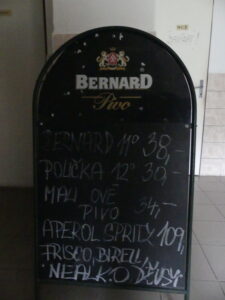 BERNARD
Pivo
BERNARD 11° 38,-
POLIČKA 12° 30,-
MALINOVÉ
PIVO 34,-
APEROL SPRITZ 109,-
FRISCO, BIRELL,
NEALKO DŽUSY